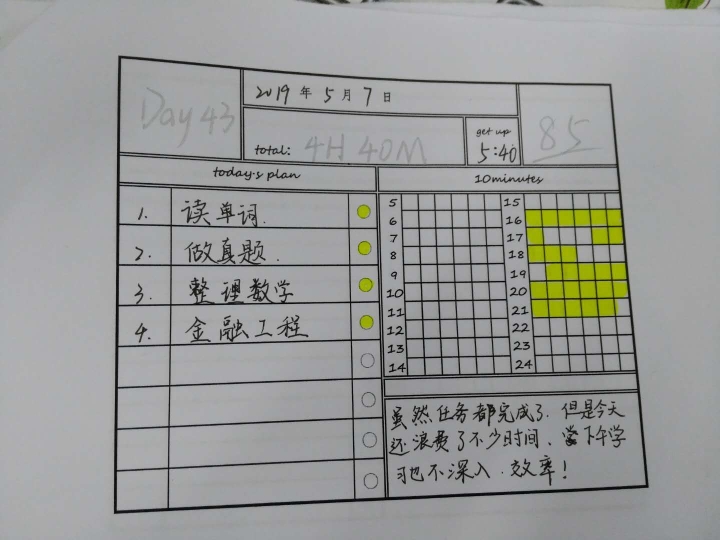 Day 43
2019年5月7日
total: 4H 40M
get up
5:40
85
today's plan
10minutes
1. 读单词.
2. 做真题.
3. 整理数学
4. 金融工程
5
6
7
8
9
10
11
12
13
14
15
16
17
18
19
20
21
22
23
24
虽然任务都完成了.但是今天
还浪费了不少时间、下午学
习也不深入.效率!